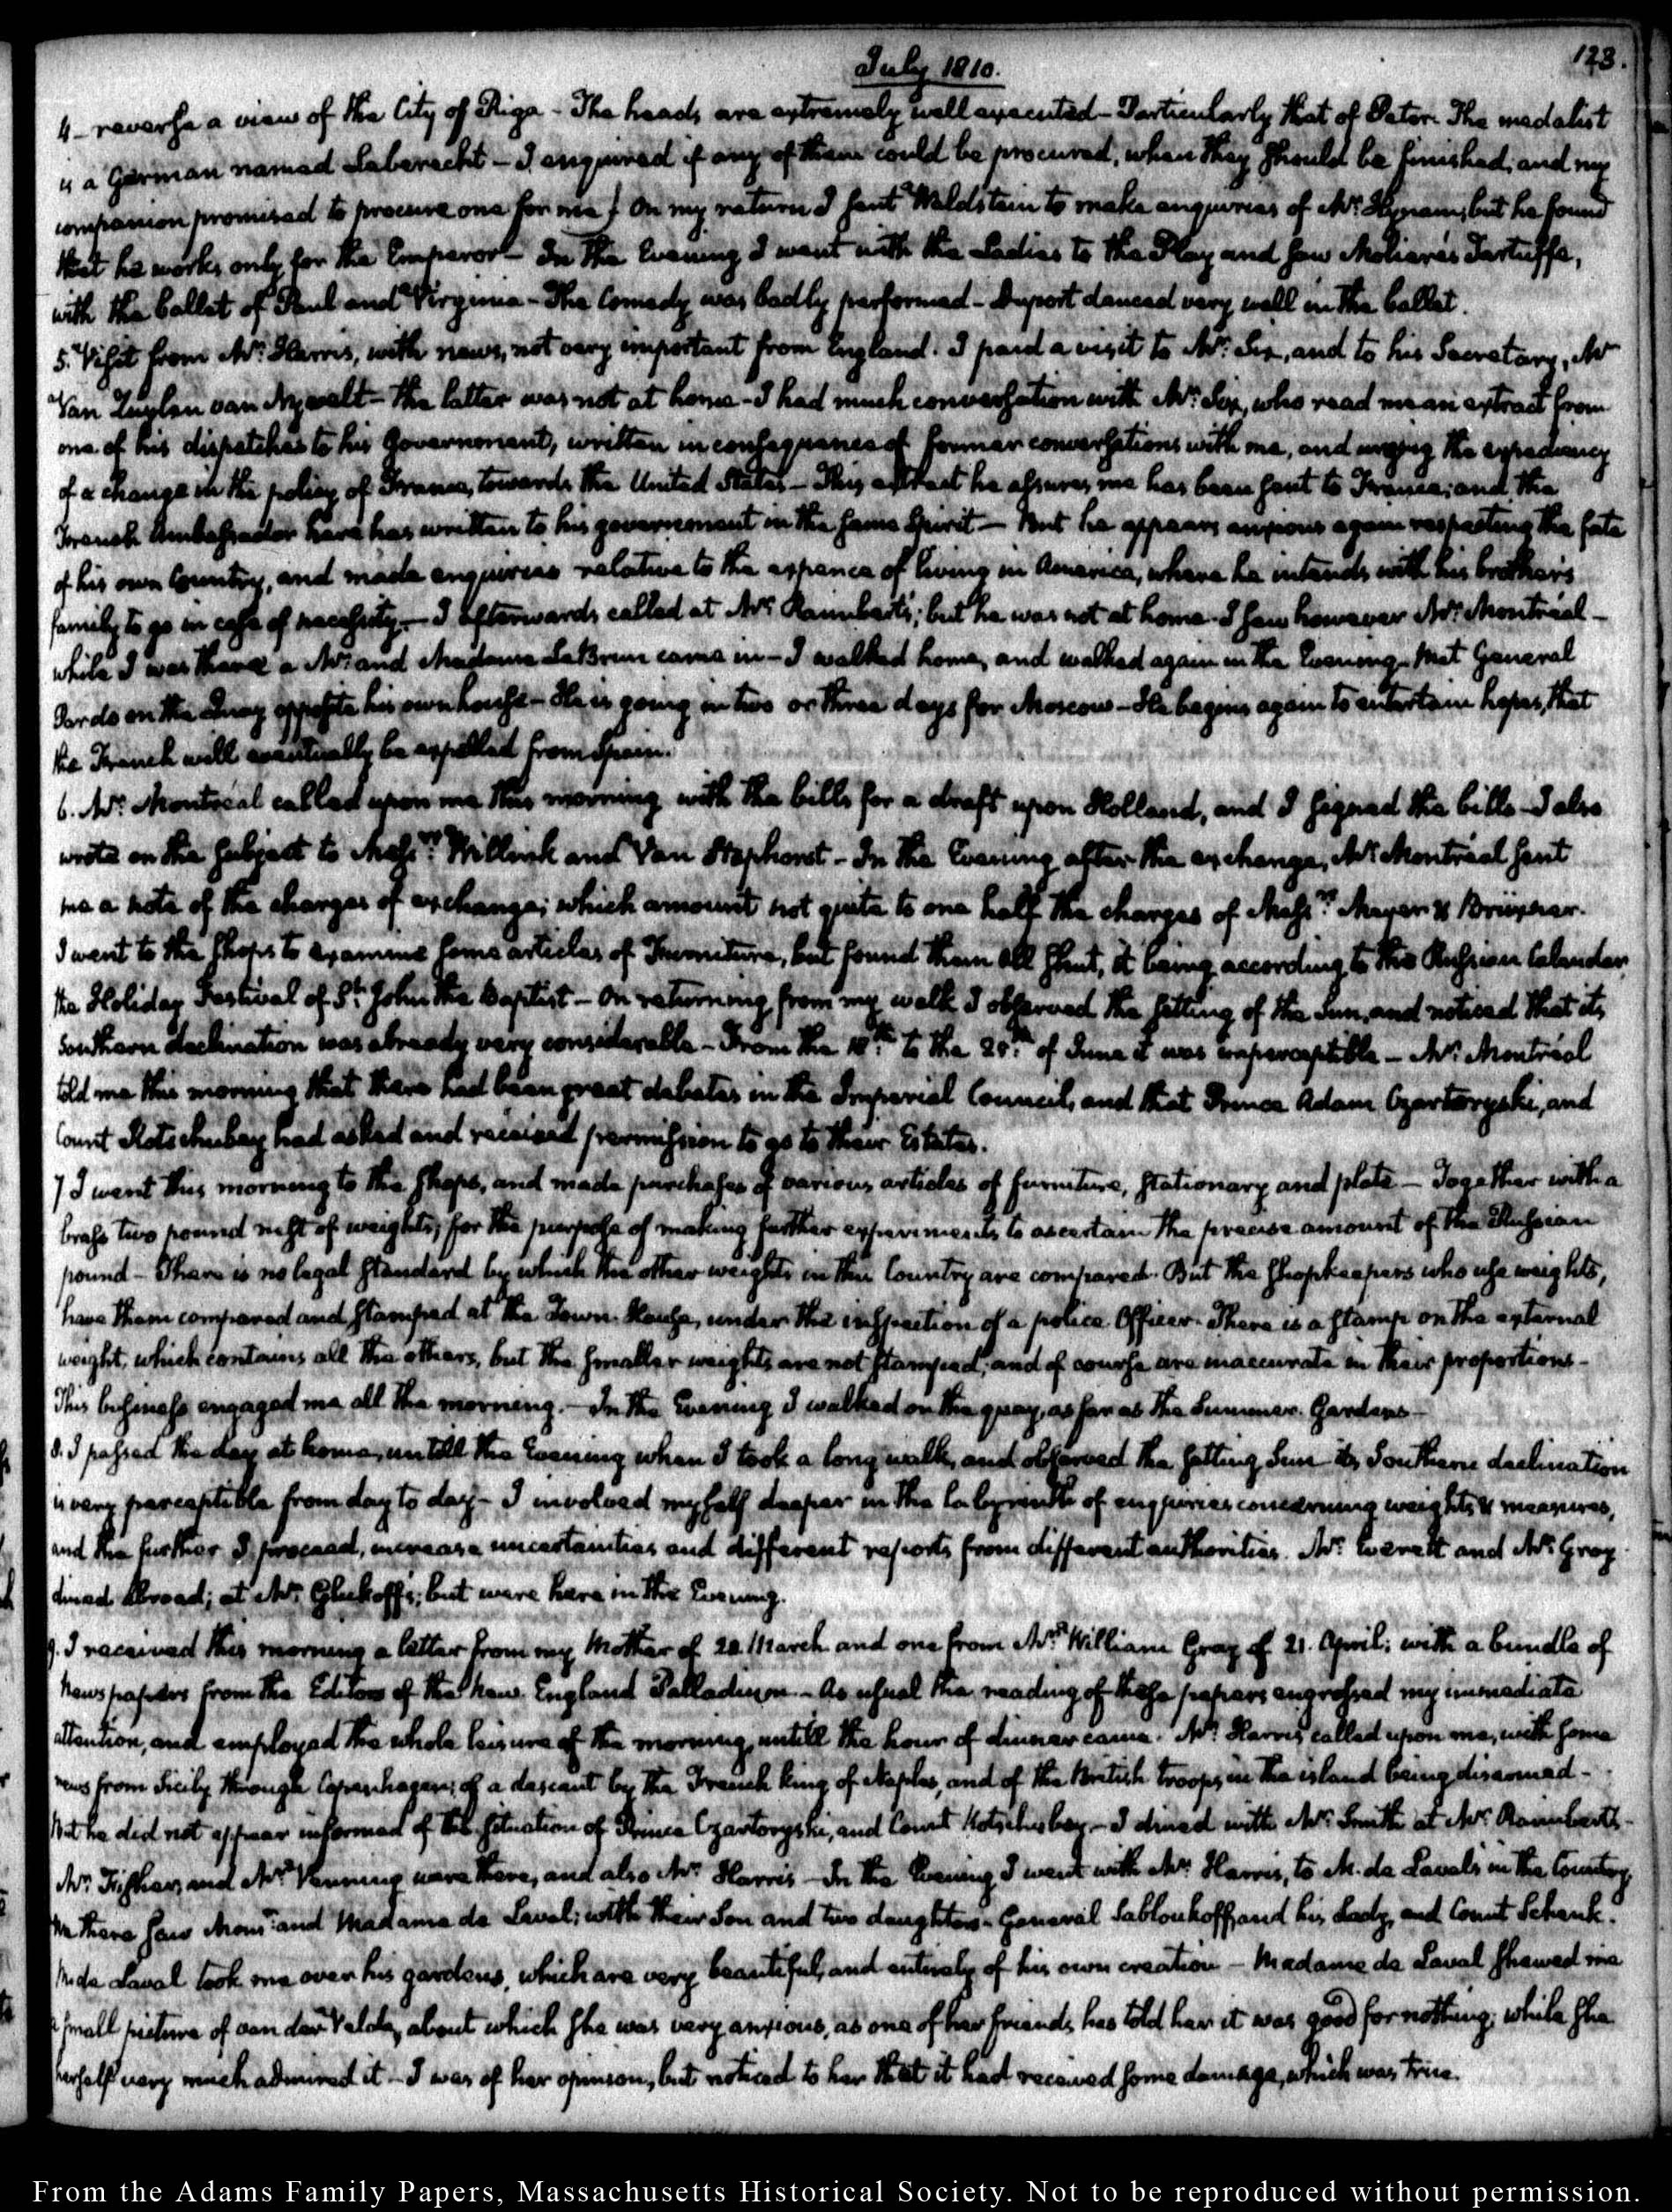 July 1810.
123.
4 - reverse a view of the City of Riga - The heads are extremely well executed - Particularly that of Peter. The medalist
is a German named Leberecht - I enquired if any of them could be procured, when they should be finished, and my
companion promised to procure one for me. On my return I sent Waldstein to make enquiries of Mr. Hynam, but he found
that he works only for the Emperor - In the Evening I went with the Ladies to the Play and saw Moliere's Tartuffe,
with the ballet of Paul and Virginia - The Comedy was badly performed - Duport danced very well in the ballet.
5. Visit from Mr. Harris, with news, not very important from England. I paid a visit to Mr. Six, and to his Secretary, Mr
Van Zuylen van Nyevelt - the latter was not at home - I had much conversation with Mr. Six, who read me an extract from
one of his dispatches to his Government, written in consequence of former conversations with me, and urging the expediency
of a change in the policy of France, towards the United States - This extract he assures me has been sent to France; and the
French Ambassador here has written to his government in the same spirit - But he appears anxious again respecting the fate
of his own Country, and made enquiries relative to the expence of living in America, where he intends with his brother's
family to go in case of necessity. - I afterwards called at Mr. Raimbert's; but he was not at home. I saw however Mr. Montréal -
while I was there a Mr. and Madame LeBrun came in - I walked home, and walked again in the Evening. Met General
Pardo on the Quay opposite his own house - He is going in two or three days for Moscow - He begins again to entertain hopes, that
the French will eventually be expelled from Spain.
6. Mr. Montréal called upon me this morning with the bills for a draft upon Holland, and I signed the bills - I also
wrote on the subject to Messrs. Willink and Van Staphorst - In the Evening after the exchange, Mr Montréal sent
me a note of the charges of exchange; which amount not quite to one half the charges of Messrs. Meyer & Brüxner.
I went to the shops to examine some articles of Furniture, but found them all shut, it being according to the Russian Calendar,
the Holiday Festival of St. John the Baptist - On returning from my walk I observed the setting of the Sun, and noticed that its
Southern declination was already very considerable - From the 18th. to the 28th. of June it was imperceptible - Mr. Montréal
told me this morning that there had been great debates in the Imperial Council, and that Prince Adam Czartoryski, and
Count Kotschubey had asked and received permission to go to their Estates.
7 I went this morning to the shops, and made purchases of various articles of furniture, stationary and plate - Together with a
brass two pound nest of weights; for the purpose of making further experiments to ascertain the precise amount of the Russian
pound - There is no legal standard by which the other weights in this Country are compared. But the shopkeepers who use weights,
have them compared and stamped at the Town-House, under the inspection of a police Officer. There is a stamp on the external
weight, which contains all the others, but the smaller weights are not stamped, and of course are inaccurate in their proportions -
This business engaged me all the morning. - In the Evening I walked on the quay, as far as the Summer Gardens -
8. I passed the day at home, untill the Evening when I took a long walk, and observed the setting Sun - its Southern declination
is very perceptible from day to day - I involved myself deeper in the labyrinth of enquiries concerning weights & measures,
and the further I proceed, increase uncertainties and different reports from different authorities. Mr. Everett and Mr. Gray
dined abroad; at Mr. Glukoff's; but were here in the Evening.
9. I received this morning a letter from my Mother of 28 March and one from Mr. William Gray of 21. April; with a bundle of
Newspapers from the Editors of the New England Palladium - As usual the reading of these papers engrossed my immediate
attention, and employed the whole leisure of the morning, untill the hour of dinner came. Mr. Harris called upon me, with some
news from Sicily through Copenhagen; of a descent by the French king of Naples, and of the British troops in the island being disarmed -
But he did not appear informed of the situation of Prince Czartoryski, and Count Kotschubey - I dined with Mr. Smith at Mr. Raimbert's -
Mr. Fisher, and Mr. Venning were there, and also Mr. Harris - In the Evening I went with Mr. Harris, to M. de Laval's in the Country.
We there saw Monsr. and Madame de Laval; with their Son and two daughters - General Sabloukoff, and his Lady, and Count Schenk.
M. de Laval took me over his gardens, which are very beautiful, and entirely of his own creation - Madame de Laval shewed me
a small picture of van der Velde, about which she was very anxious, as one of her friends has told her it was good for nothing; while she
herself very much admired it - I was of her opinion, but noticed to her that it had received some damage, which was true.
From the Adams Family Papers, Massachusetts Historical Society. Not to be reproduced without permission.